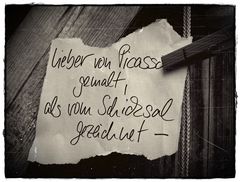 Lieber von Picasso
gemalt,
als vom Schicksal
gezeichnet –